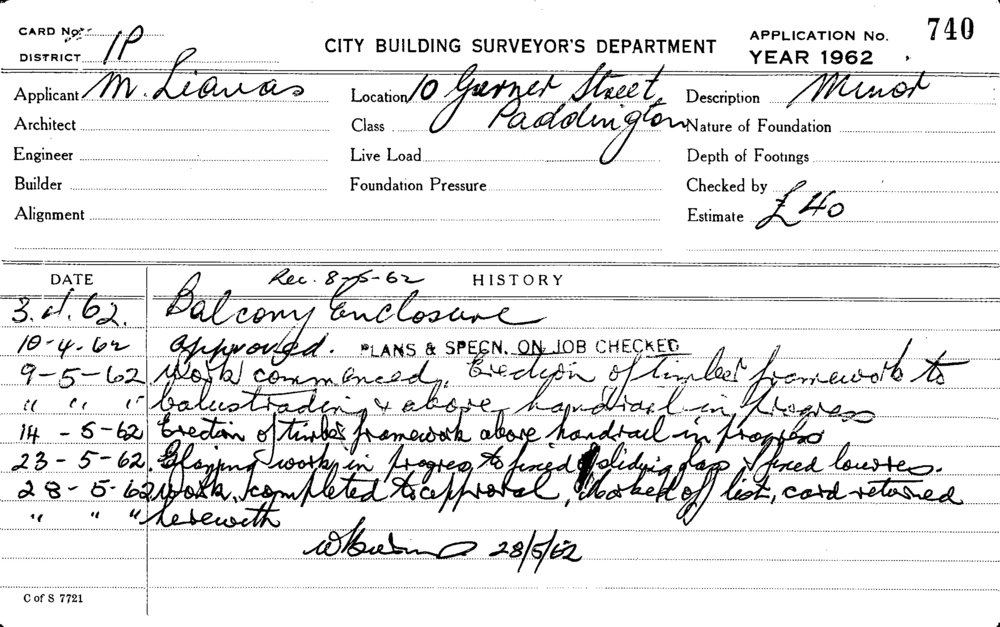 CARD No.
DISTRICT 1P
CITY BUILDING SURVEYOR'S DEPARTMENT
APPLICATION No. 740
YEAR 1962
Applicant M. Lianas
Location 10 Gurner Street, Paddington
Description Minor
Architect
Class
Nature of Foundation
Engineer
Live Load
Depth of Footings
Builder
Foundation Pressure
Checked by
Alignment
Estimate £40
DATE
Rec. 8-5-62 HISTORY
3. 4. 62. Balcony Enclosure
10-4-62 Approved. PLANS & SPECN. ON JOB CHECKED
9-5-62 Work commenced, Erection of timber framework to
" " " balustrading & above handrail in progress
14-5-62 Erection of timber framework above handrail in progress
23-5-62 Glazing work in progress to fixed & sliding glass & fixed louvres.
28-5-62 Work completed to approval, Marked off list, card returned
" " " herewith
28/5/62
C of S 7721